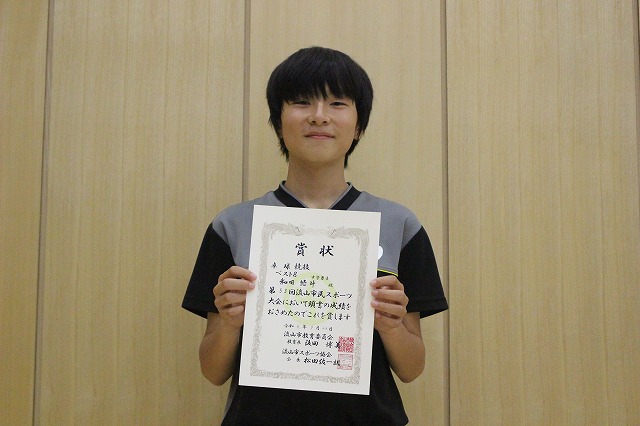 賞状
卓球競技
ベスト8 中学男子
和田 悠 殿
第 回流山市民スポーツ
大会において頭書の成績を
おさめたのでこれを賞します
令和 年 月 日
流山市教育委員会
教育長
流山市スポーツ協会
会長 松田